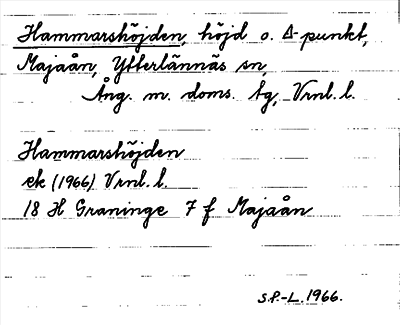 Hammarshöjden, höjd o. Δ-punkt,
Majaån, Ytterlännäs sn,
Ång. m. doms. tg, Vrnl. l.
Hammarshöjden
ek (1966) Vrnl. l.
18 H Graninge 7 f Majaån
S.P.-L. 1966.